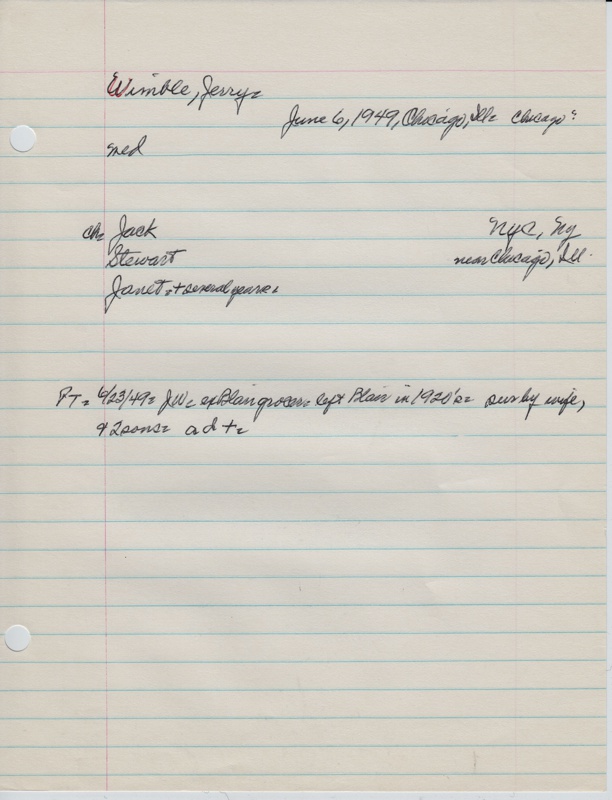 Wimble, Jerry=
June 6, 1949, Chicago, Ill= Chicago"
med
ch= Jack NYC, Ny
Stewart near Chicago, Ill.
Janet=+several years=
PT= 6/23/49= JW= exBlair grocer= left Blair in 1920's= sur by wife,
+ 2 sons= a d +=